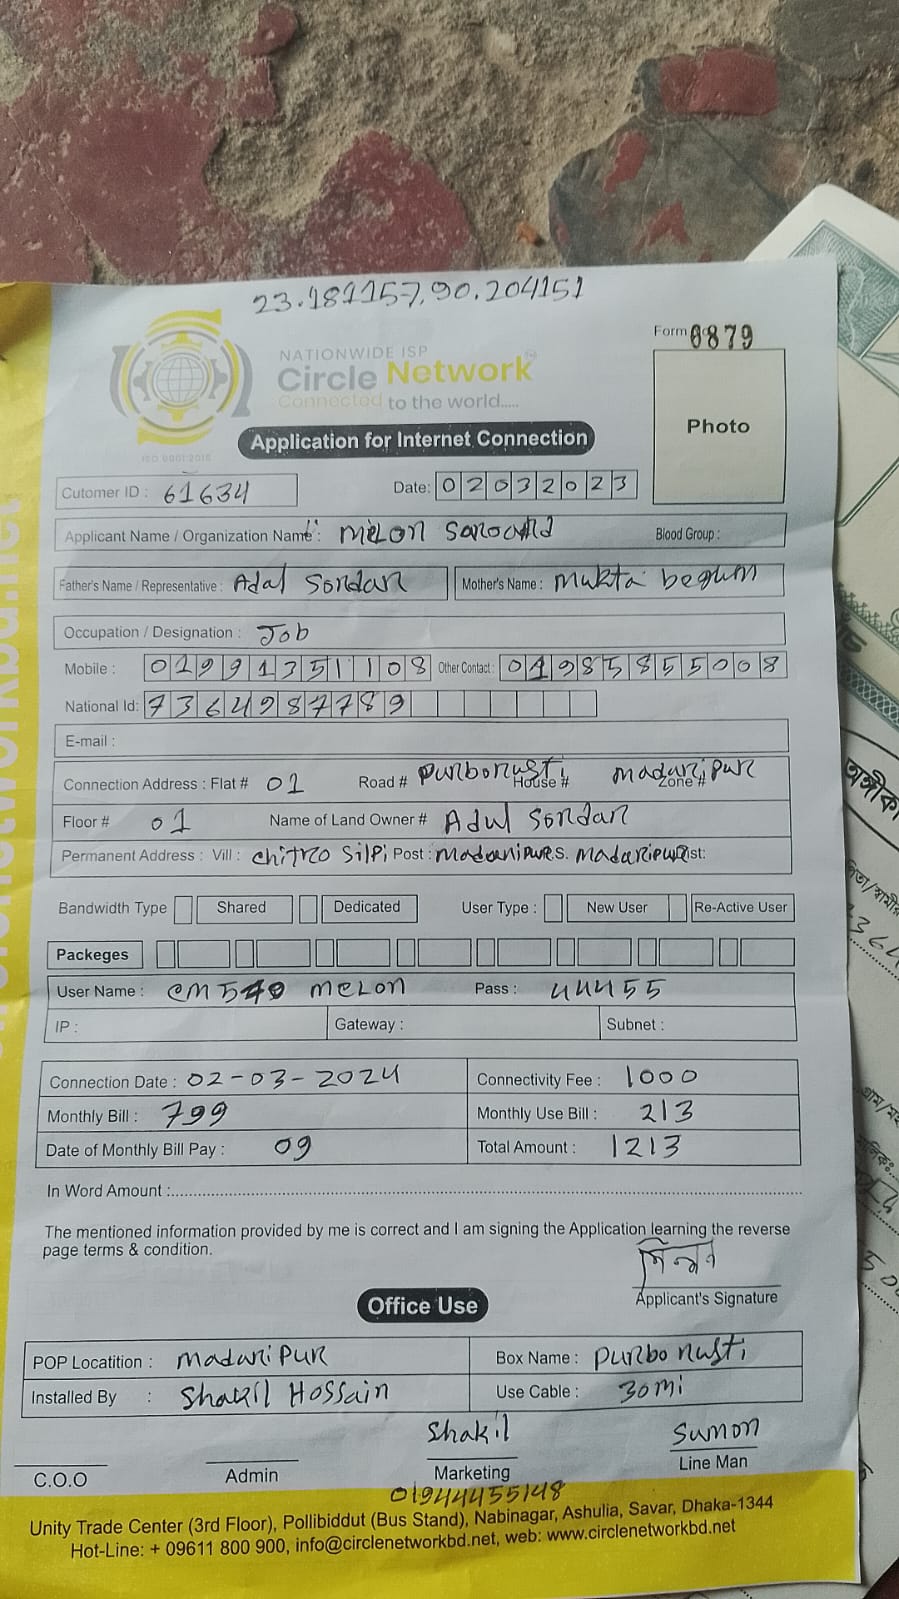 23.181157,90.204151
Form 0879
NATIONWIDE ISP
Circle Network
Connected to the world.....
ISO 9001:2015
Photo
Application for Internet Connection
Cutomer ID : 61634 Date: 02032023
Applicant Name / Organization Name : MELON Blood Group :
Father's Name / Representative : Adal Sordar Mother's Name : Mukta begum
Occupation / Designation : Job
Mobile : 01991351108 Other Contact : 01985855008
National Id: 7364987789
E-mail :
Connection Address : Flat # 01 Road # Purborasti House # Madaripur Zone #
Floor # 01 Name of Land Owner # Adul Sordar
Permanent Address : Vill : Chitro Silpi Post : Madaripur P.S. Madaripur Dist:
Bandwidth Type Shared Dedicated User Type : New User Re-Active User
Packeges
User Name : MELON Pass : 44455
IP : Gateway : Subnet :
Connection Date : 02-03-2024 Connectivity Fee : 1000
Monthly Bill : 799 Monthly Use Bill : 213
Date of Monthly Bill Pay : 09 Total Amount : 1213
In Word Amount :
The mentioned information provided by me is correct and I am signing the Application learning the reverse
page terms & condition.
Applicant's Signature
Office Use
POP Locatition : Madaripur Box Name : Purbo rasti
Installed By : Shakil Hossain Use Cable : 30mi
Shakil Sumon
C.O.O Admin Marketing Line Man
01944455148
Unity Trade Center (3rd Floor), Pollibiddut (Bus Stand), Nabinagar, Ashulia, Savar, Dhaka-1344
Hot-Line: + 09611 800 900, info@circlenetworkbd.net, web: www.circlenetworkbd.net